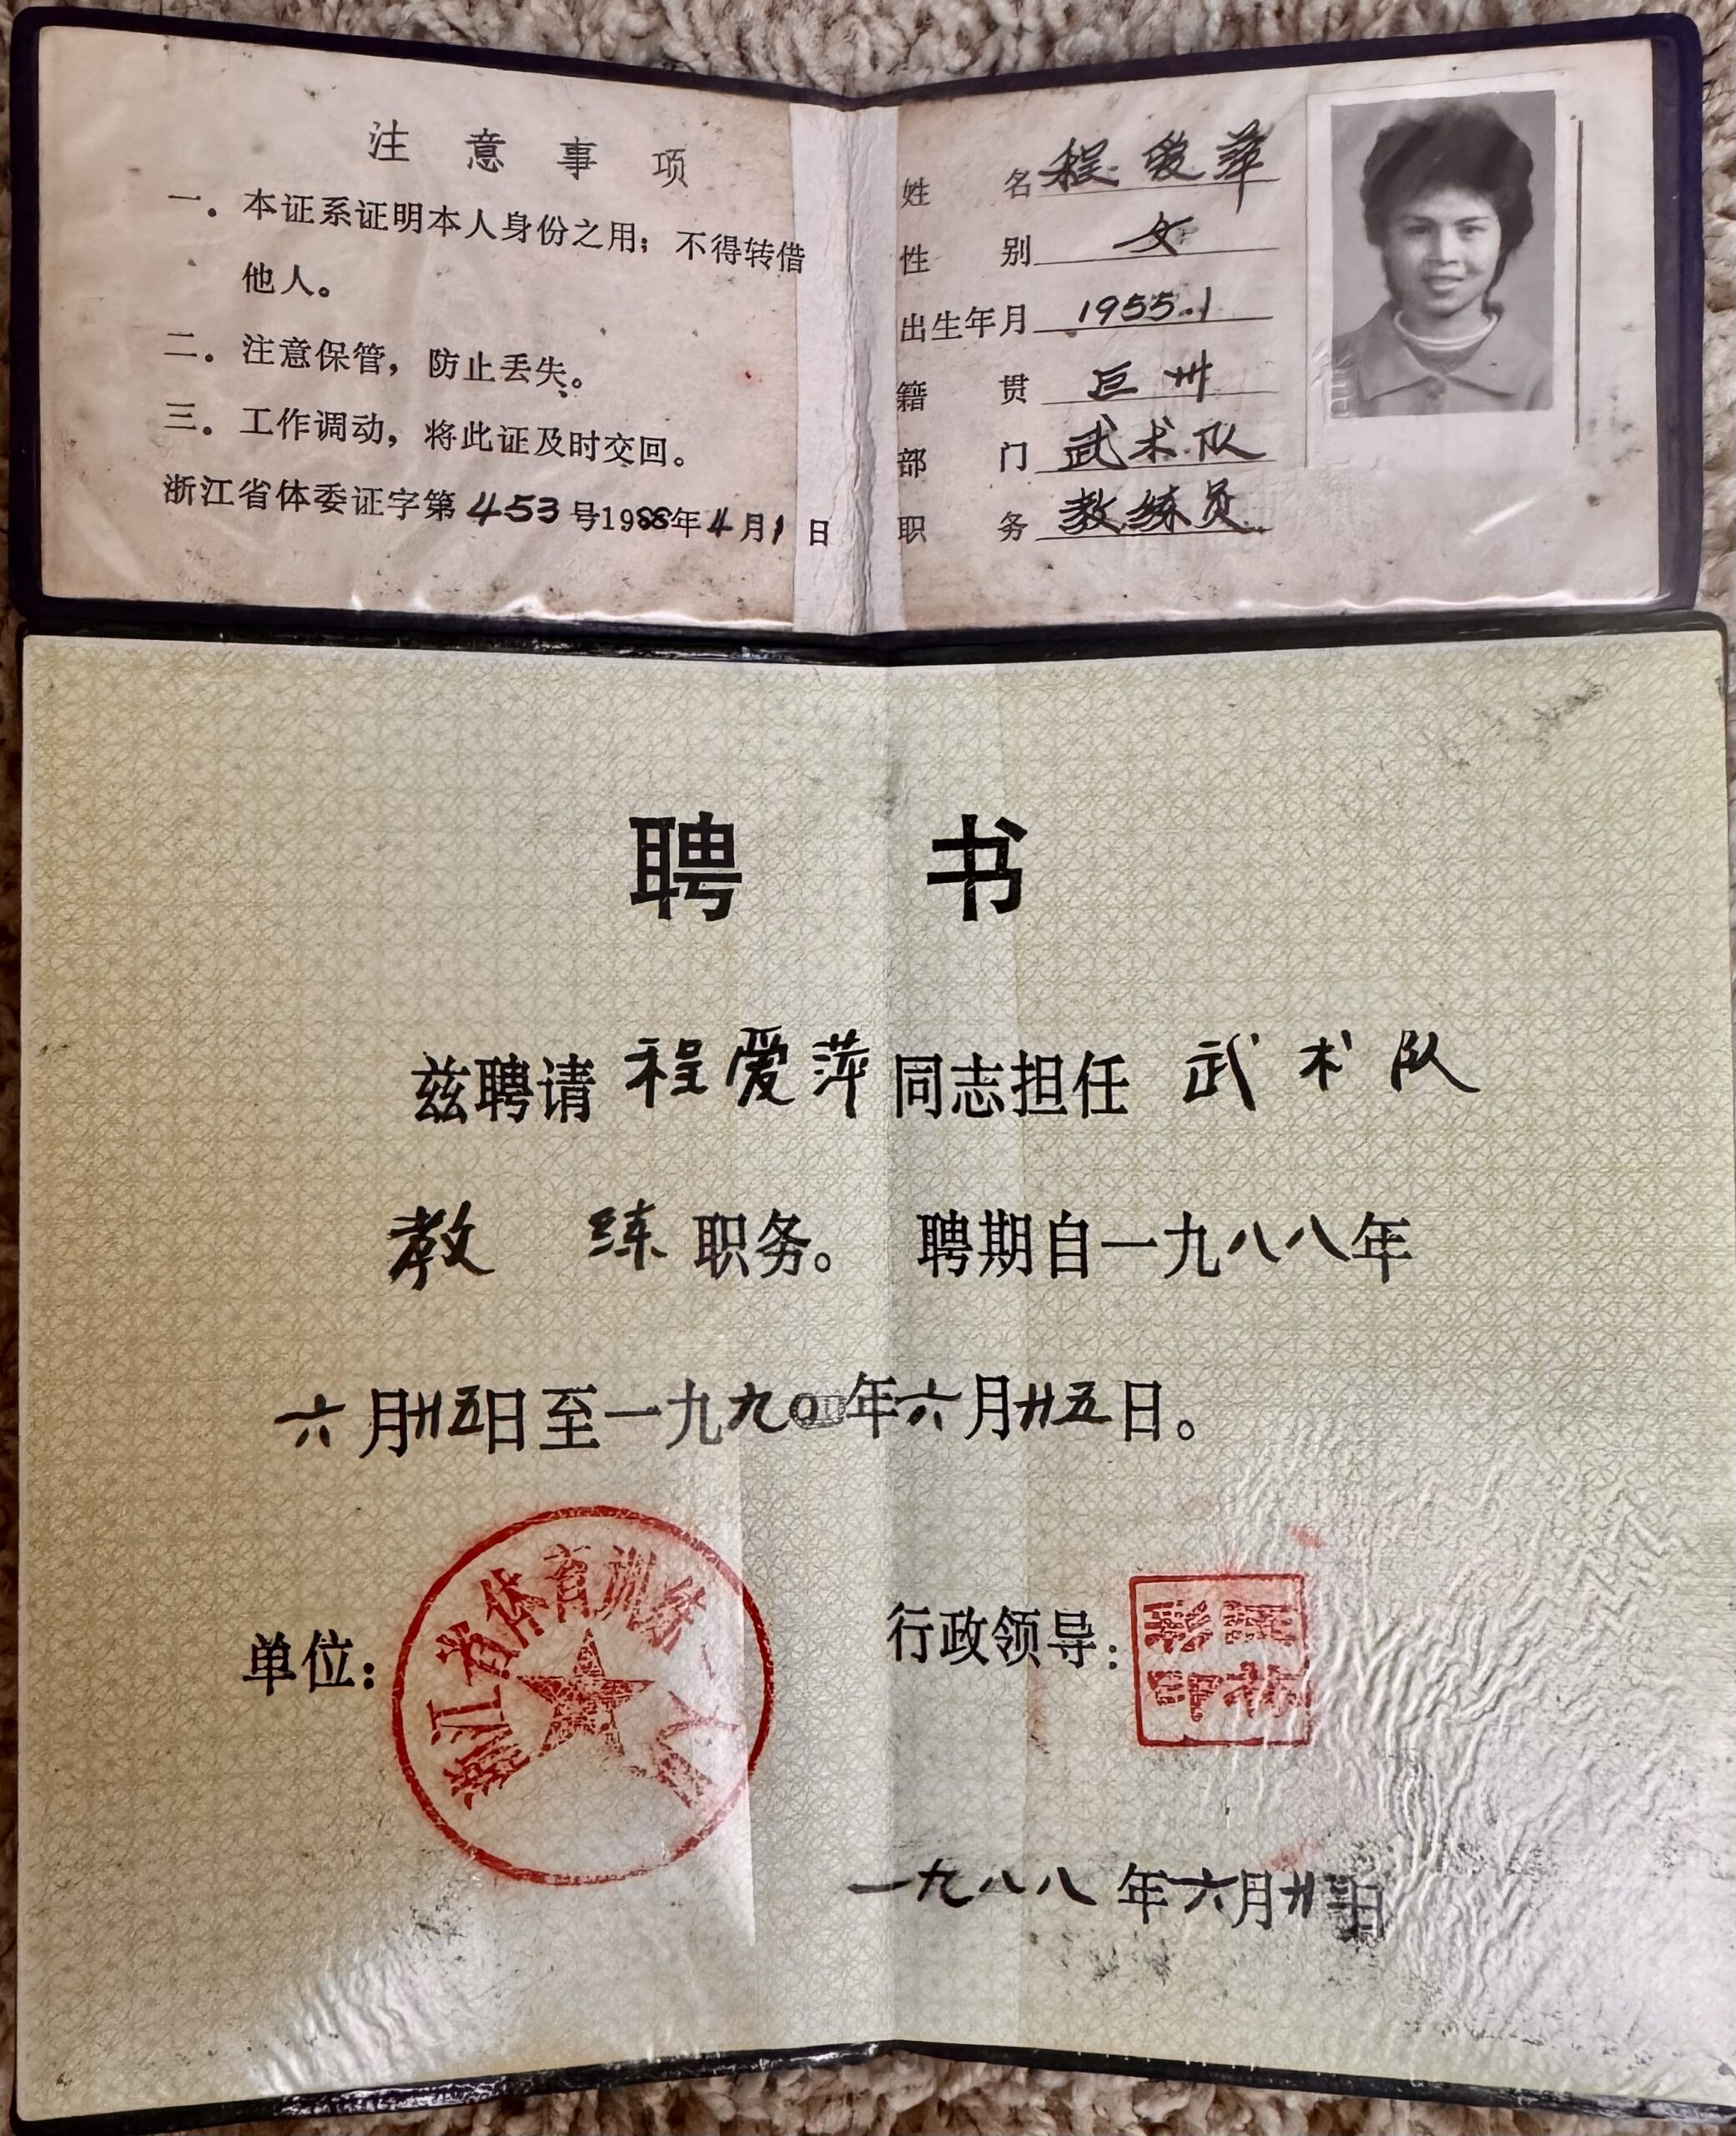 注意事项
一。本证系证明本人身份之用；不得转借
他人。
二。注意保管，防止丢失。
三。工作调动，将此证及时交回。
浙江省体委证字第453号1988年4月1日
姓名 程爱萍
性别 女
出生年月 1955.1
籍贯
部门 武术队
职务 教练员
聘书
兹聘请程爱萍同志担任武术队
教练职务。聘期自一九八八年
六月廿五日至一九九0年六月廿五日。
单位：
浙江省体育训练
行政领导：
一九八八年六月廿日